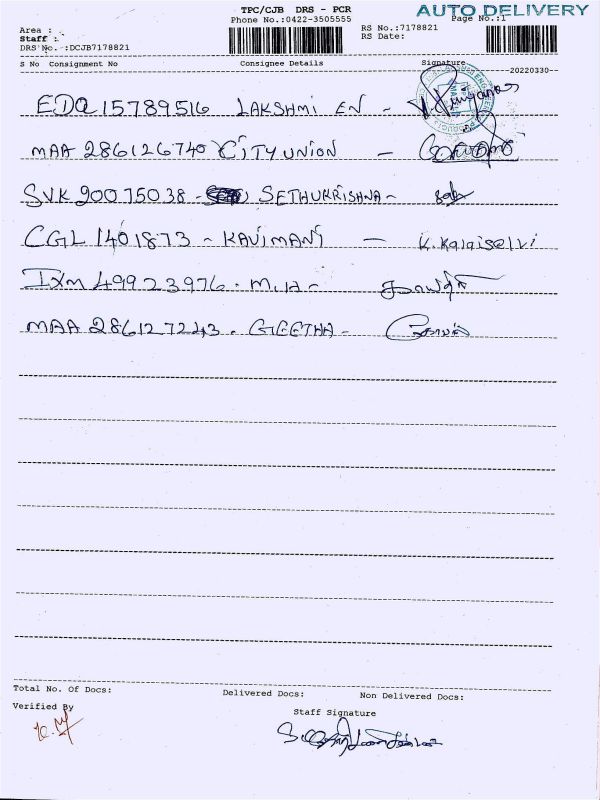 TPC/CJB DRS - PCR
AUTO DELIVERY
Phone No.:0422-3505555
Page No.:1
Area :
RS No.:7178821
Staff :
RS Date:
DRS No.:DCJB7178821
S No Consignment No Consignee Details Signature
20220330
EDQ 15789516 LAKSHMI EN -
MAA 286126740 CITY UNION -
SVK 20075038 - SETHUKRISHNA -
CGL 1401873 - KAVIMANI - K.Kalaiselvi
IXM 49923976 - M.H -
MAA 286127243 - GEETHA -
Total No. Of Docs: Delivered Docs: Non Delivered Docs:
Verified By
Staff Signature